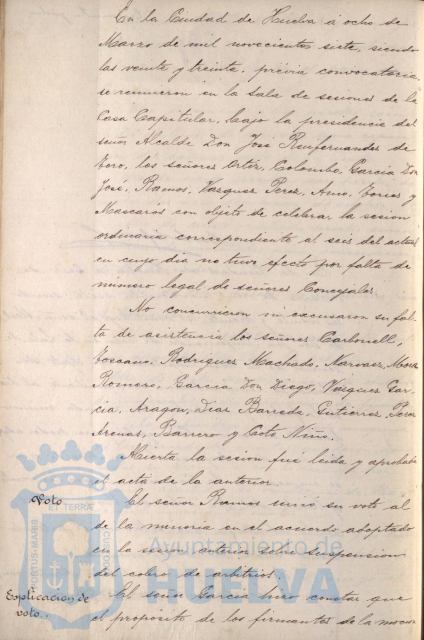 En la Ciudad de Huelva á ocho de
Marzo de mil novecientos siete, siendo
las veinte y treinta, prévia convocatoria,
se reunieron en la Sala de sesiones de la
Casa Capitular, bajo la presidencia del
señor Alcalde Don José
Toro, los señores Ortíz, Colombo, García Don
José, Ramos, Vazquez Perez, Amo, Torres y
Mascarós con objeto de celebrar la sesion
ordinaria correspondiente al seis del actual
en cuyo dia no tuvo efecto por falta de
numero legal de señores Concejales.
No concurrieron ni excusaron su fal-
ta de asistencia los señores Carbonell,
Toscano, Rodriguez Machado, Narvaez, Mora
Romero, García Don Diego, Vazquez Gar-
cia, Aragon, Diaz Barreda, Gutierrez, Perez
Arenas, Barrero y Coto Niño.
Abierta la sesion fué leida y aprobada
el acta de la anterior.
Voto
El señor Ramos unió su voto al
de la minoria en el acuerdo adoptado
en la sesion anterior sobre suspension
del cobro de arbitrios.
Explicacion de
voto.
El señor García hizo constar que
el propósito de los firmantes de la mocion
Ayuntamiento de
HUELVA
PORTUS MARIS
ET TERRÆ
CUSTODIA